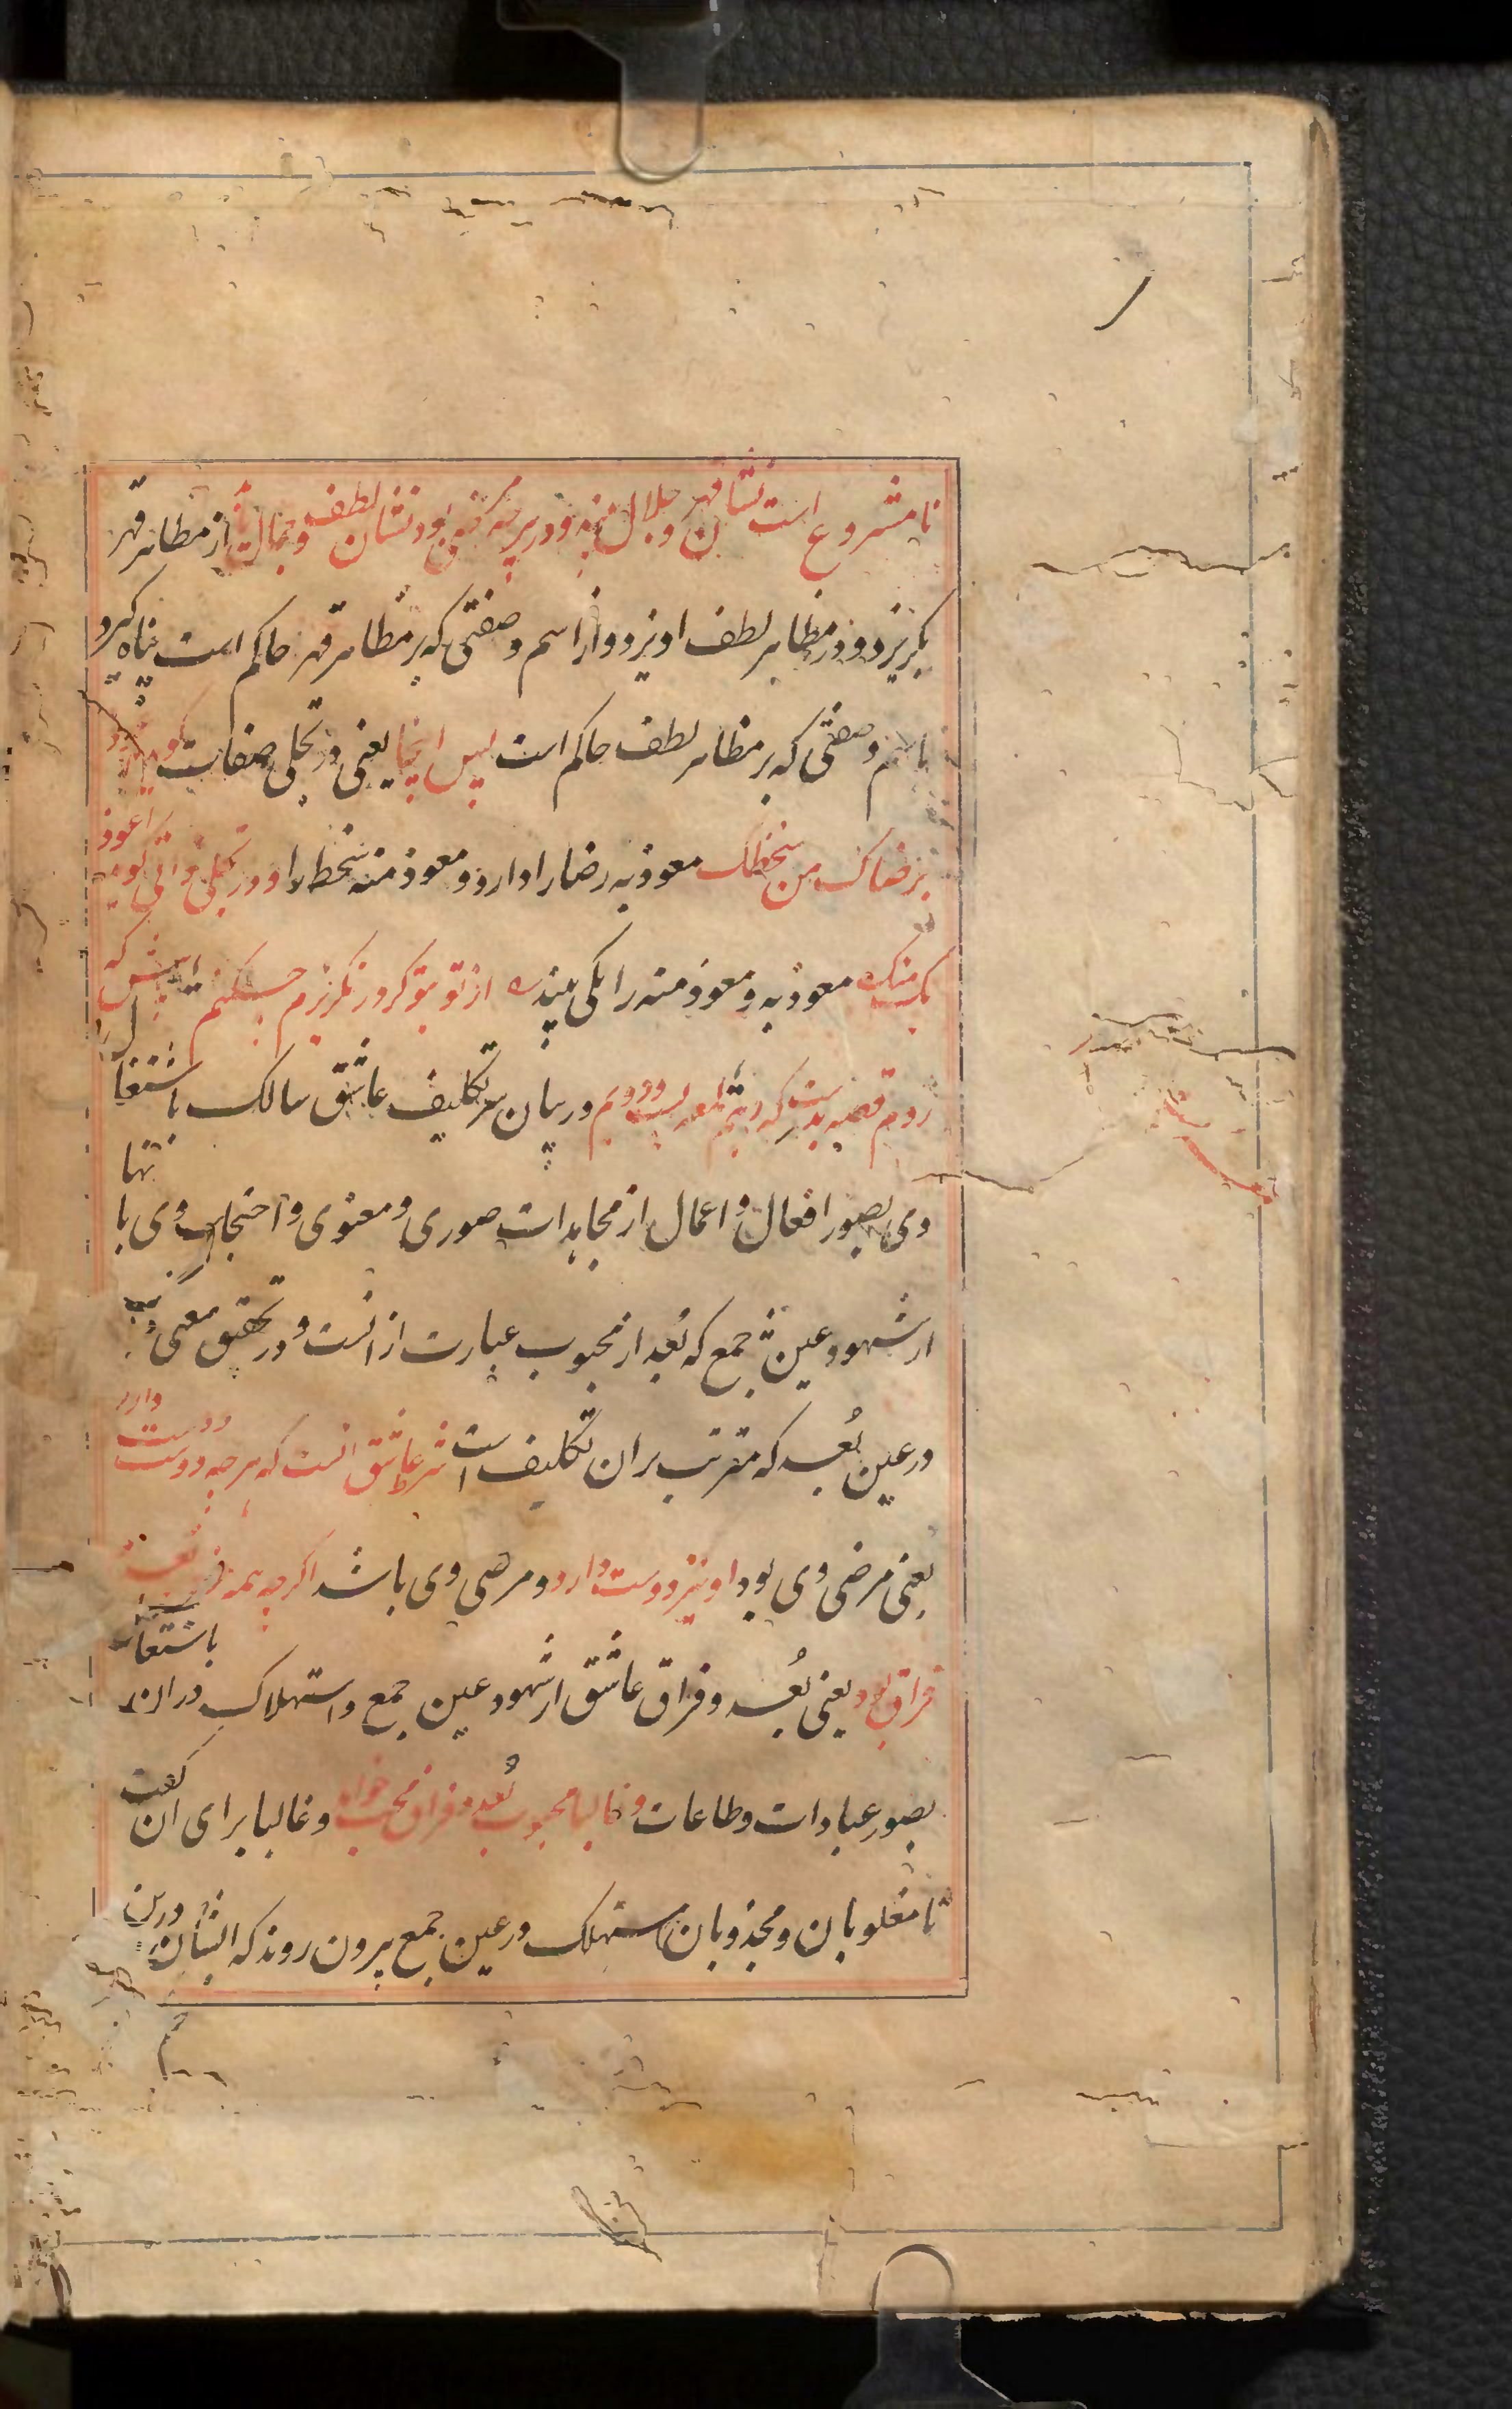 نامشروع است نشان قهر و جلال بیند و در هر چه مرضی بود نشان لطف و جمال یابد از مظاهر قهر
بکریزد و در مظاهر لطف اویزد و از اسم و صفتی که بر مظاهر قهر حاکم است پناه گیرد
باسم و صفتی که بر مظاهر لطف حاکم است پس اینجا یعنی در تجلی صفات گوید اعوذ
برضاک من سخطک معوذ به رضا را دارد و معوذ منه سخط را و در تجلی ذاتی گوید اعوذ
بک منک معوذ به و معوذ منه را یکی بیند از تو بتو گر نگریزم چکنم پیش که
روم قصه بدست که دهم لمعه بیست و دویم در بیان سر تکلیف عاشق سالک باشتغال
وی بصور افعال و اعمال از مجاهدات صوری و معنوی و احتجاب وی بانها
از شهود عین جمع که بعد از محبوب عبارت از انست و در تحقیق معنی قرب
در عین بُعد که مترتب بران تکلیف است شرط عاشق انست که هر چه دوست دوست دارد
یعنی مرضی وی بود او نیز دوست دارد و مرضی وی باشد اگر چه همه
فراق بود یعنی بُعد و فراق عاشق از شهود عین جمع و استهلاک دران باشتغال
بصور عبادات و طاعات و غالبا محبوب بُعد و فراق محب خواهد و غالبا برای ان گفت
تا مغلوبان و مجذوبان مستهلک در عین جمع بیرون روند که ایشان درین